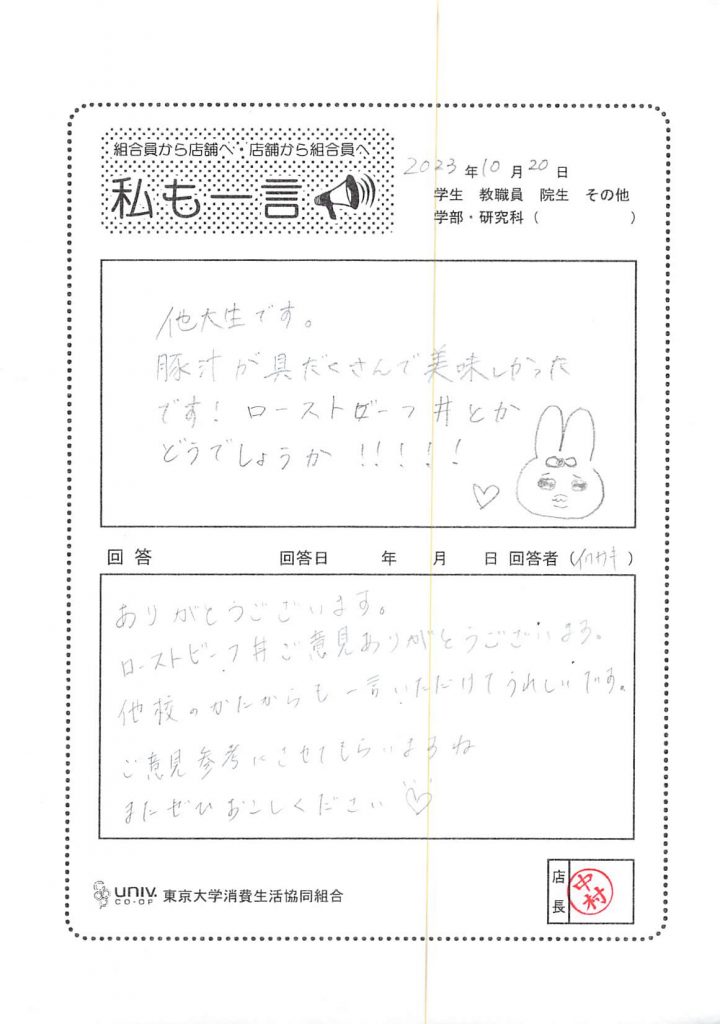 組合員から店舗へ・店舗から組合員へ
私も一言
2023年10月20日
学生 教職員 院生 その他
学部・研究科( )
他大生です。
豚汁が具だくさんで美味しかった
です！ローストビーフ丼とか
どうでしょうか!!!!!
回答 回答日 年 月 日 回答者(イワサキ)
ありがとうございます。
ローストビーフ丼ご意見ありがとうございます。
他校のかたからも一言いただけてうれしいです。
ご意見参考にさせてもらいますね
またぜひおこしください♡
UNIV. CO-OP 東京大学消費生活協同組合
店長
中村